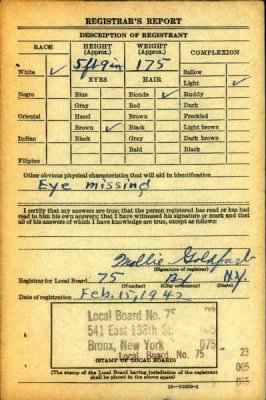 REGISTRAR'S REPORT
DESCRIPTION OF REGISTRANT
RACE HEIGHT (Approx.) WEIGHT (Approx.) COMPLEXION
White ✓ 5ft 9in 175 Sallow
EYES HAIR Light ✓
Negro Blue Blonde ✓ Ruddy
Gray Red Dark
Oriental Hazel Brown Freckled
Brown ✓ Black Light brown
Indian Black Gray Dark brown
Bald Black
Filipino
Other obvious physical characteristics that will aid in identification
Eye missing
I certify that my answers are true; that the person registered has read or has had
read to him his own answers; that I have witnessed his signature or mark and that
all of his answers of which I have knowledge are true, except as follows:
Mollie Goldfarb
(Signature of registrar)
Registrar for Local Board 75 Bx N.Y.
(Number) (City or county) (State)
Date of registration Feb. 15, 1942
Local Board No. 75
541 East 138th St. 005
Bronx, New York 075
Local Board No. 75 23
(STAMP OF LOCAL BOARD) 005
075
(The stamp of the Local Board having jurisdiction of the registrant
shall be placed in the above space)